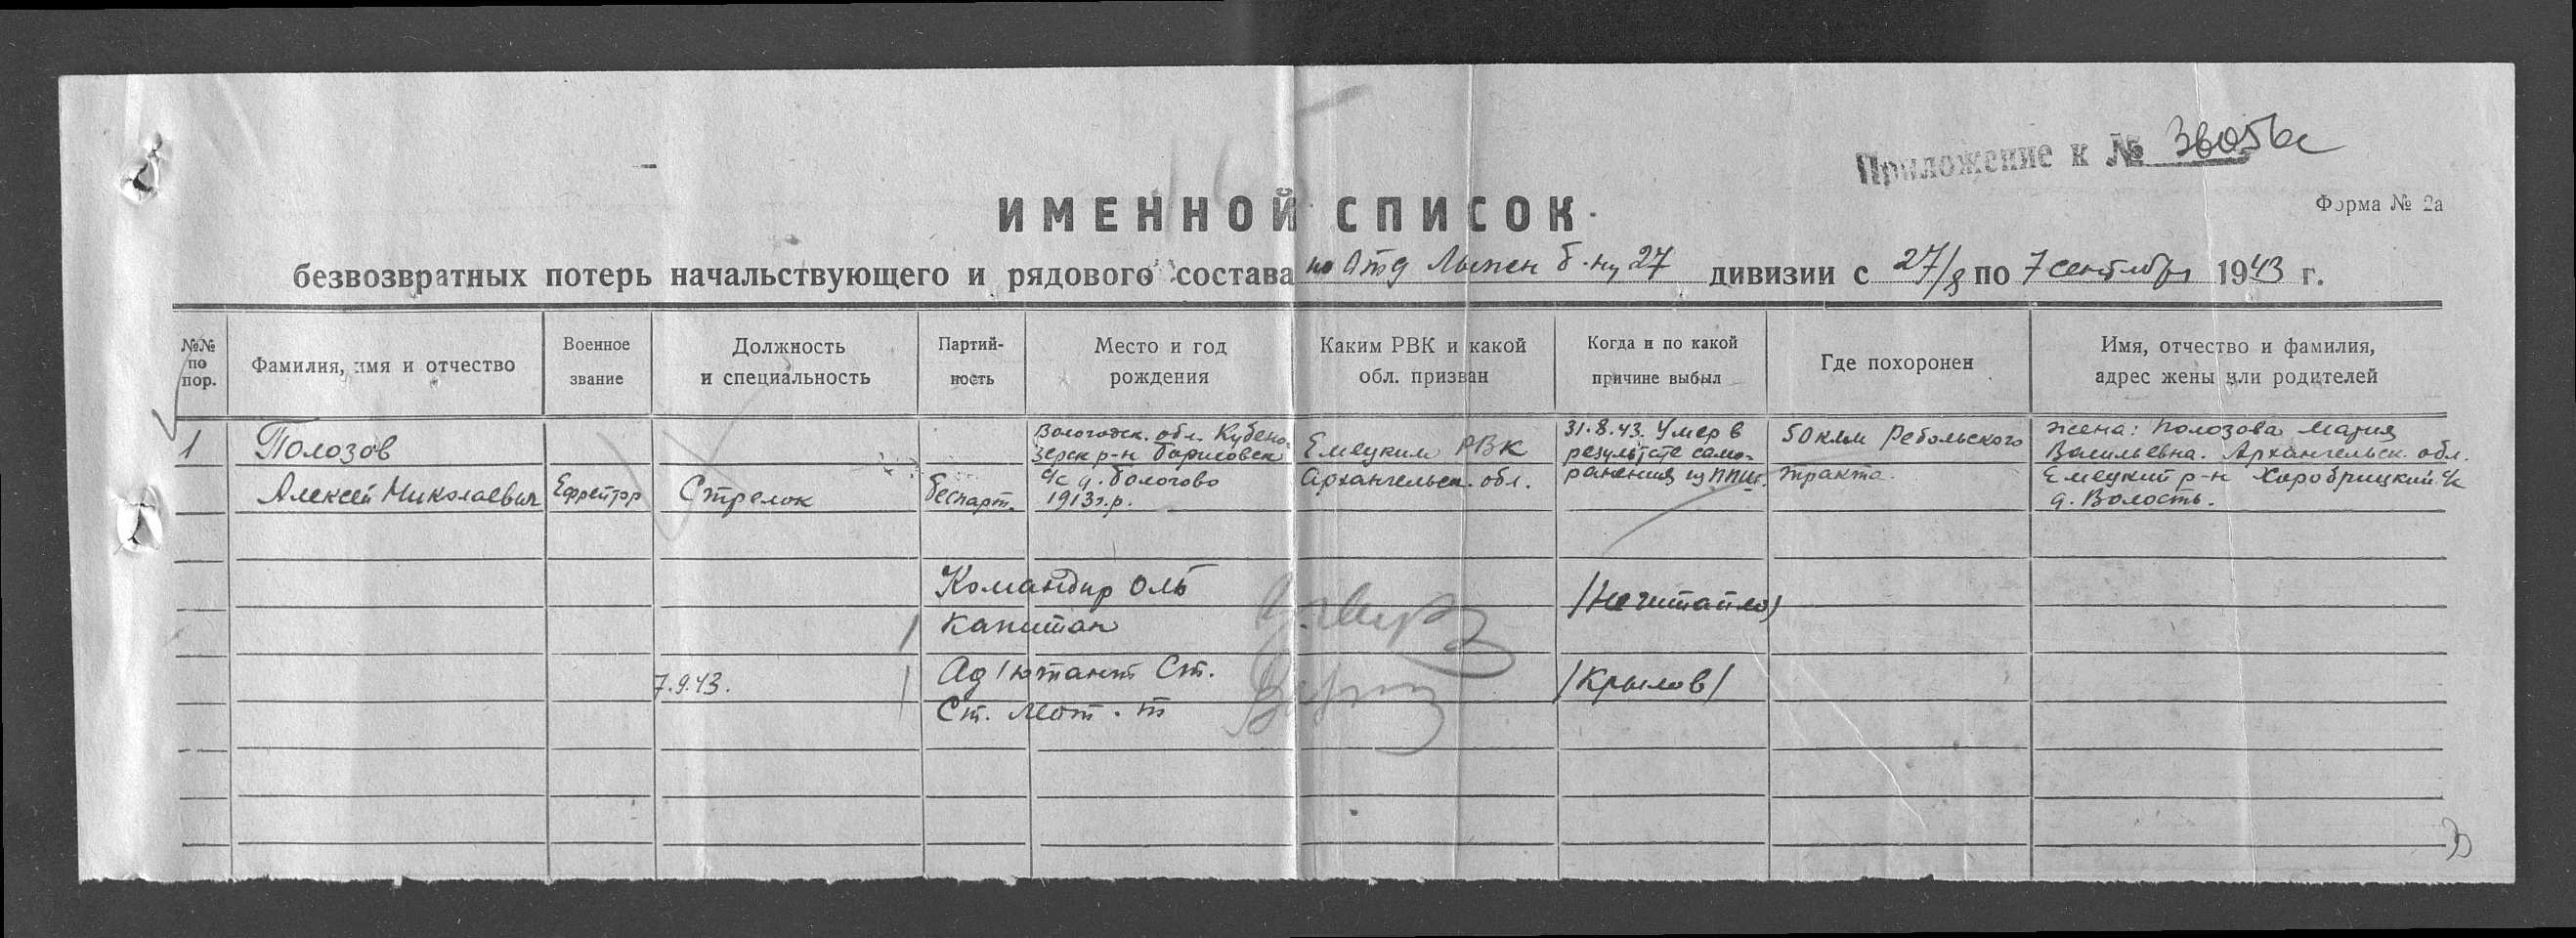 Приложение к № 36056с
Форма № 2а
ИМЕННОЙ СПИСОК
безвозвратных потерь начальствующего и рядового состава по Отд Лыжн б-ну 27 дивизии с 27/8 по 7 сентября 1943 г.
№№ по пор.
Фамилия, имя и отчество
Военное звание
Должность и специальность
Партий-ность
Место и год рождения
Каким РВК и какой обл. призван
Когда и по какой причине выбыл
Где похоронен
Имя, отчество и фамилия, адрес жены или родителей
1
Полозов
Алексей Николаевич
Ефрейтор
Стрелок
беспарт.
Вологодск. обл. Кубено-
зерск р-н Борисовск
с/с д. Бологово
1913 г.р.
Емецким РВК
Архангельск. обл.
31.8.43. Умер в
результате само-
ранения из ППШ.
50 клм Ребольского
тракта.
жена: Полозова Мария
Васильевна. Архангельск. обл.
Емецкий р-н Хоробрицкий с/с
д. Волость.
Командир ОЛБ
Капитан
7.9.43.
Ад'ютант Ст.
/Крылов/
Ст. лейт-т